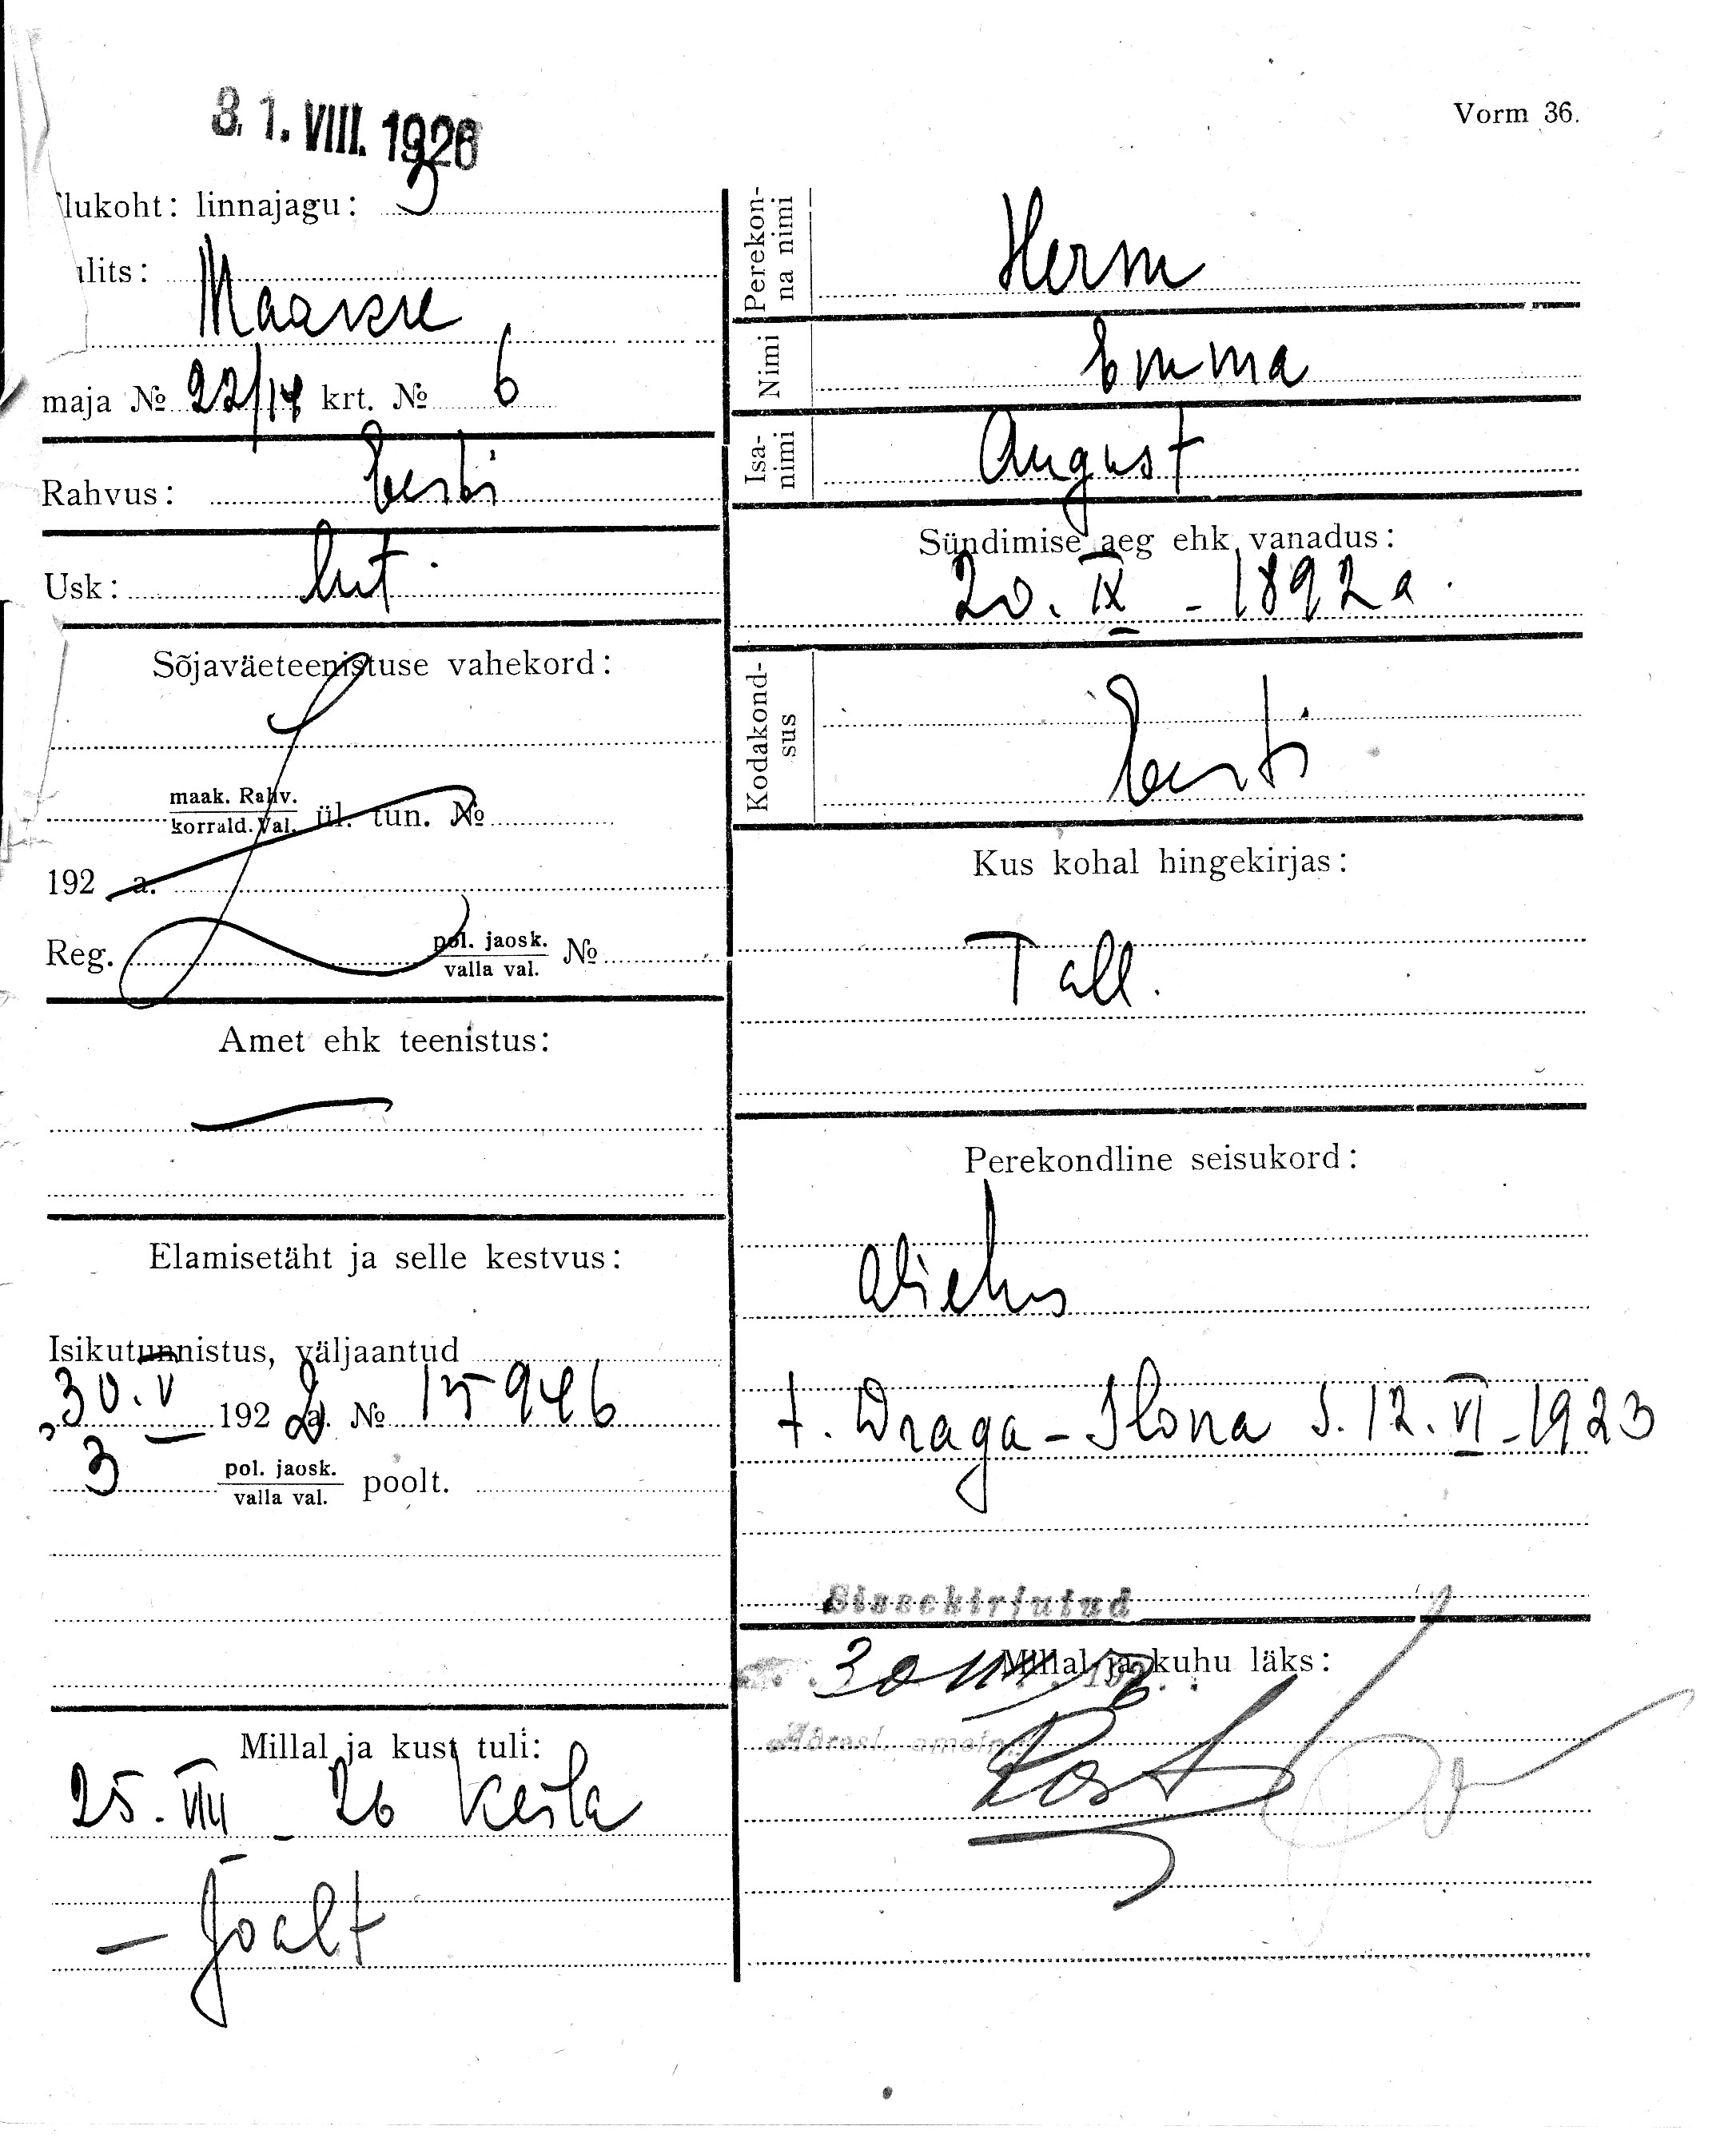 31. VIII. 1926
Vorm 36.
lukoht: linnajagu: 3
ulits:
Maakre
maja № 22/14 krt. № 6
Rahvus: Eesti
Usk: lut.
Sõjaväeteenistuse vahekord:
maak. Rahv.
korrald. Val. ül. tun. №
192 a.
Reg. pol. jaosk.
valla val. №
Amet ehk teenistus:
—
Elamisetäht ja selle kestvus:
Isikutunnistus, väljaantud
30. V 192 2 a. № 15946
3 pol. jaosk.
valla val. poolt.
Millal ja kust tuli:
25. VIII - 26 Keila
- Joalt
Perekon-
na nimi Herm
Nimi Emma
Isa-
nimi August
Sündimise aeg ehk vanadus:
20. IX - 1892 a.
Kodakond-
sus Eesti
Kus kohal hingekirjas:
Tall.
Perekondline seisukord:
t. Draga-Ilona s. 12. VI-1923
Sissekirjutud
Millal ja kuhu läks: